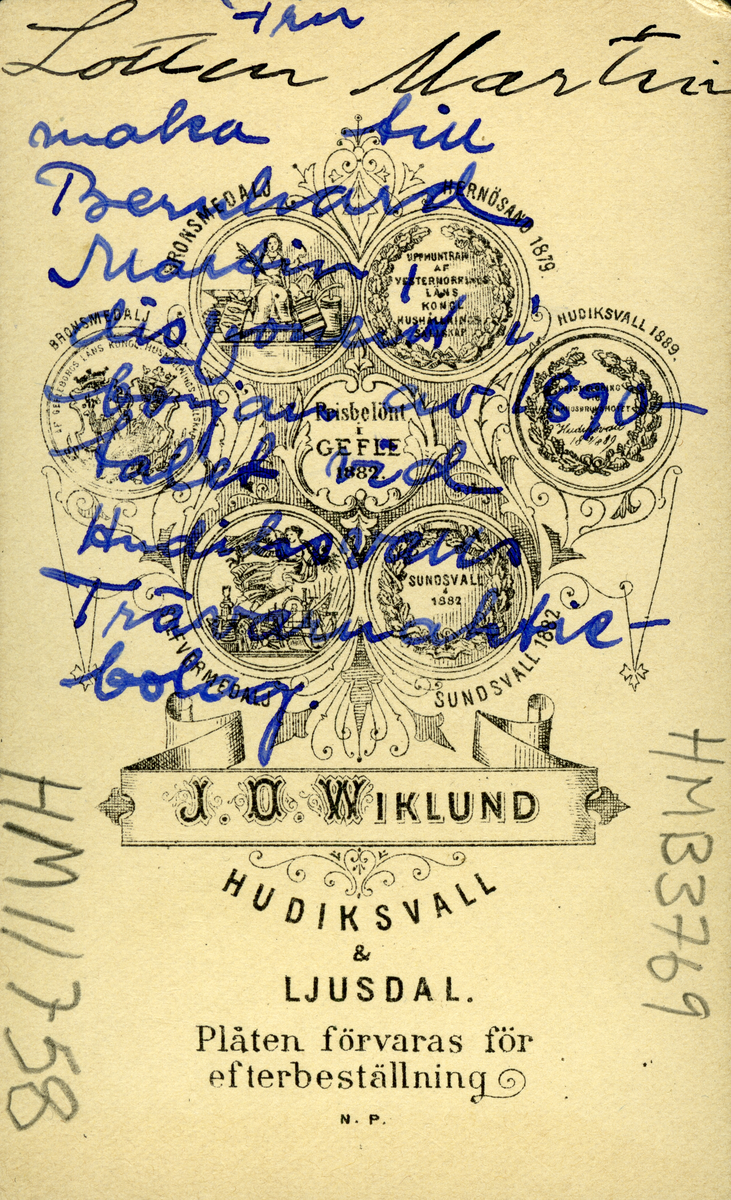 Fru
Lotten Martin
maka till
Bernhard
Martin,
disponent i
början av 1890-
talet vid
Hudiksvalls
Trävaruaktie-
bolag.
BRONSMEDALJ
HERNÖSAND 1879.
UPPMUNTRAN
AF
VESTERNORRLANDS
LÄNS
KONGL
HUSHÅLLNINGS
SÄLLSKAP
BRONSMEDALJ
GEFLEBORGS LÄNS KONGL HUSHÅLLNINGS
HUDIKSVALL 1889.
Hudiksvall
Prisbelönt
i
GEFLE
1882
SUNDSVALL
1882
SILFVERMEDALJ
SUNDSVALL 1882
J. O. WIKLUND
HUDIKSVALL
&
LJUSDAL.
Plåten förvaras för
efterbeställning
N. P.
HM11758
HMB3769